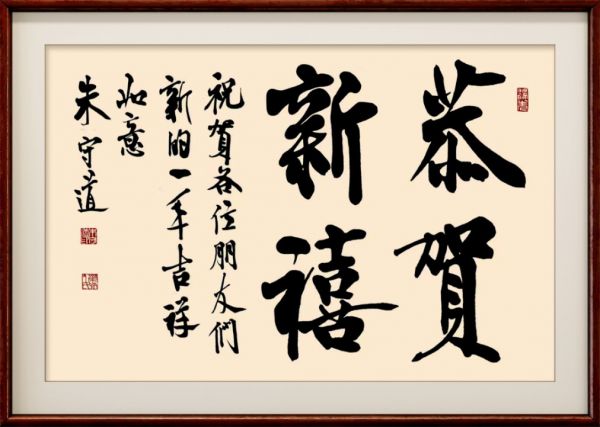 恭賀
新禧
祝賀各位朋友們
新的一年吉祥
如意
朱守道